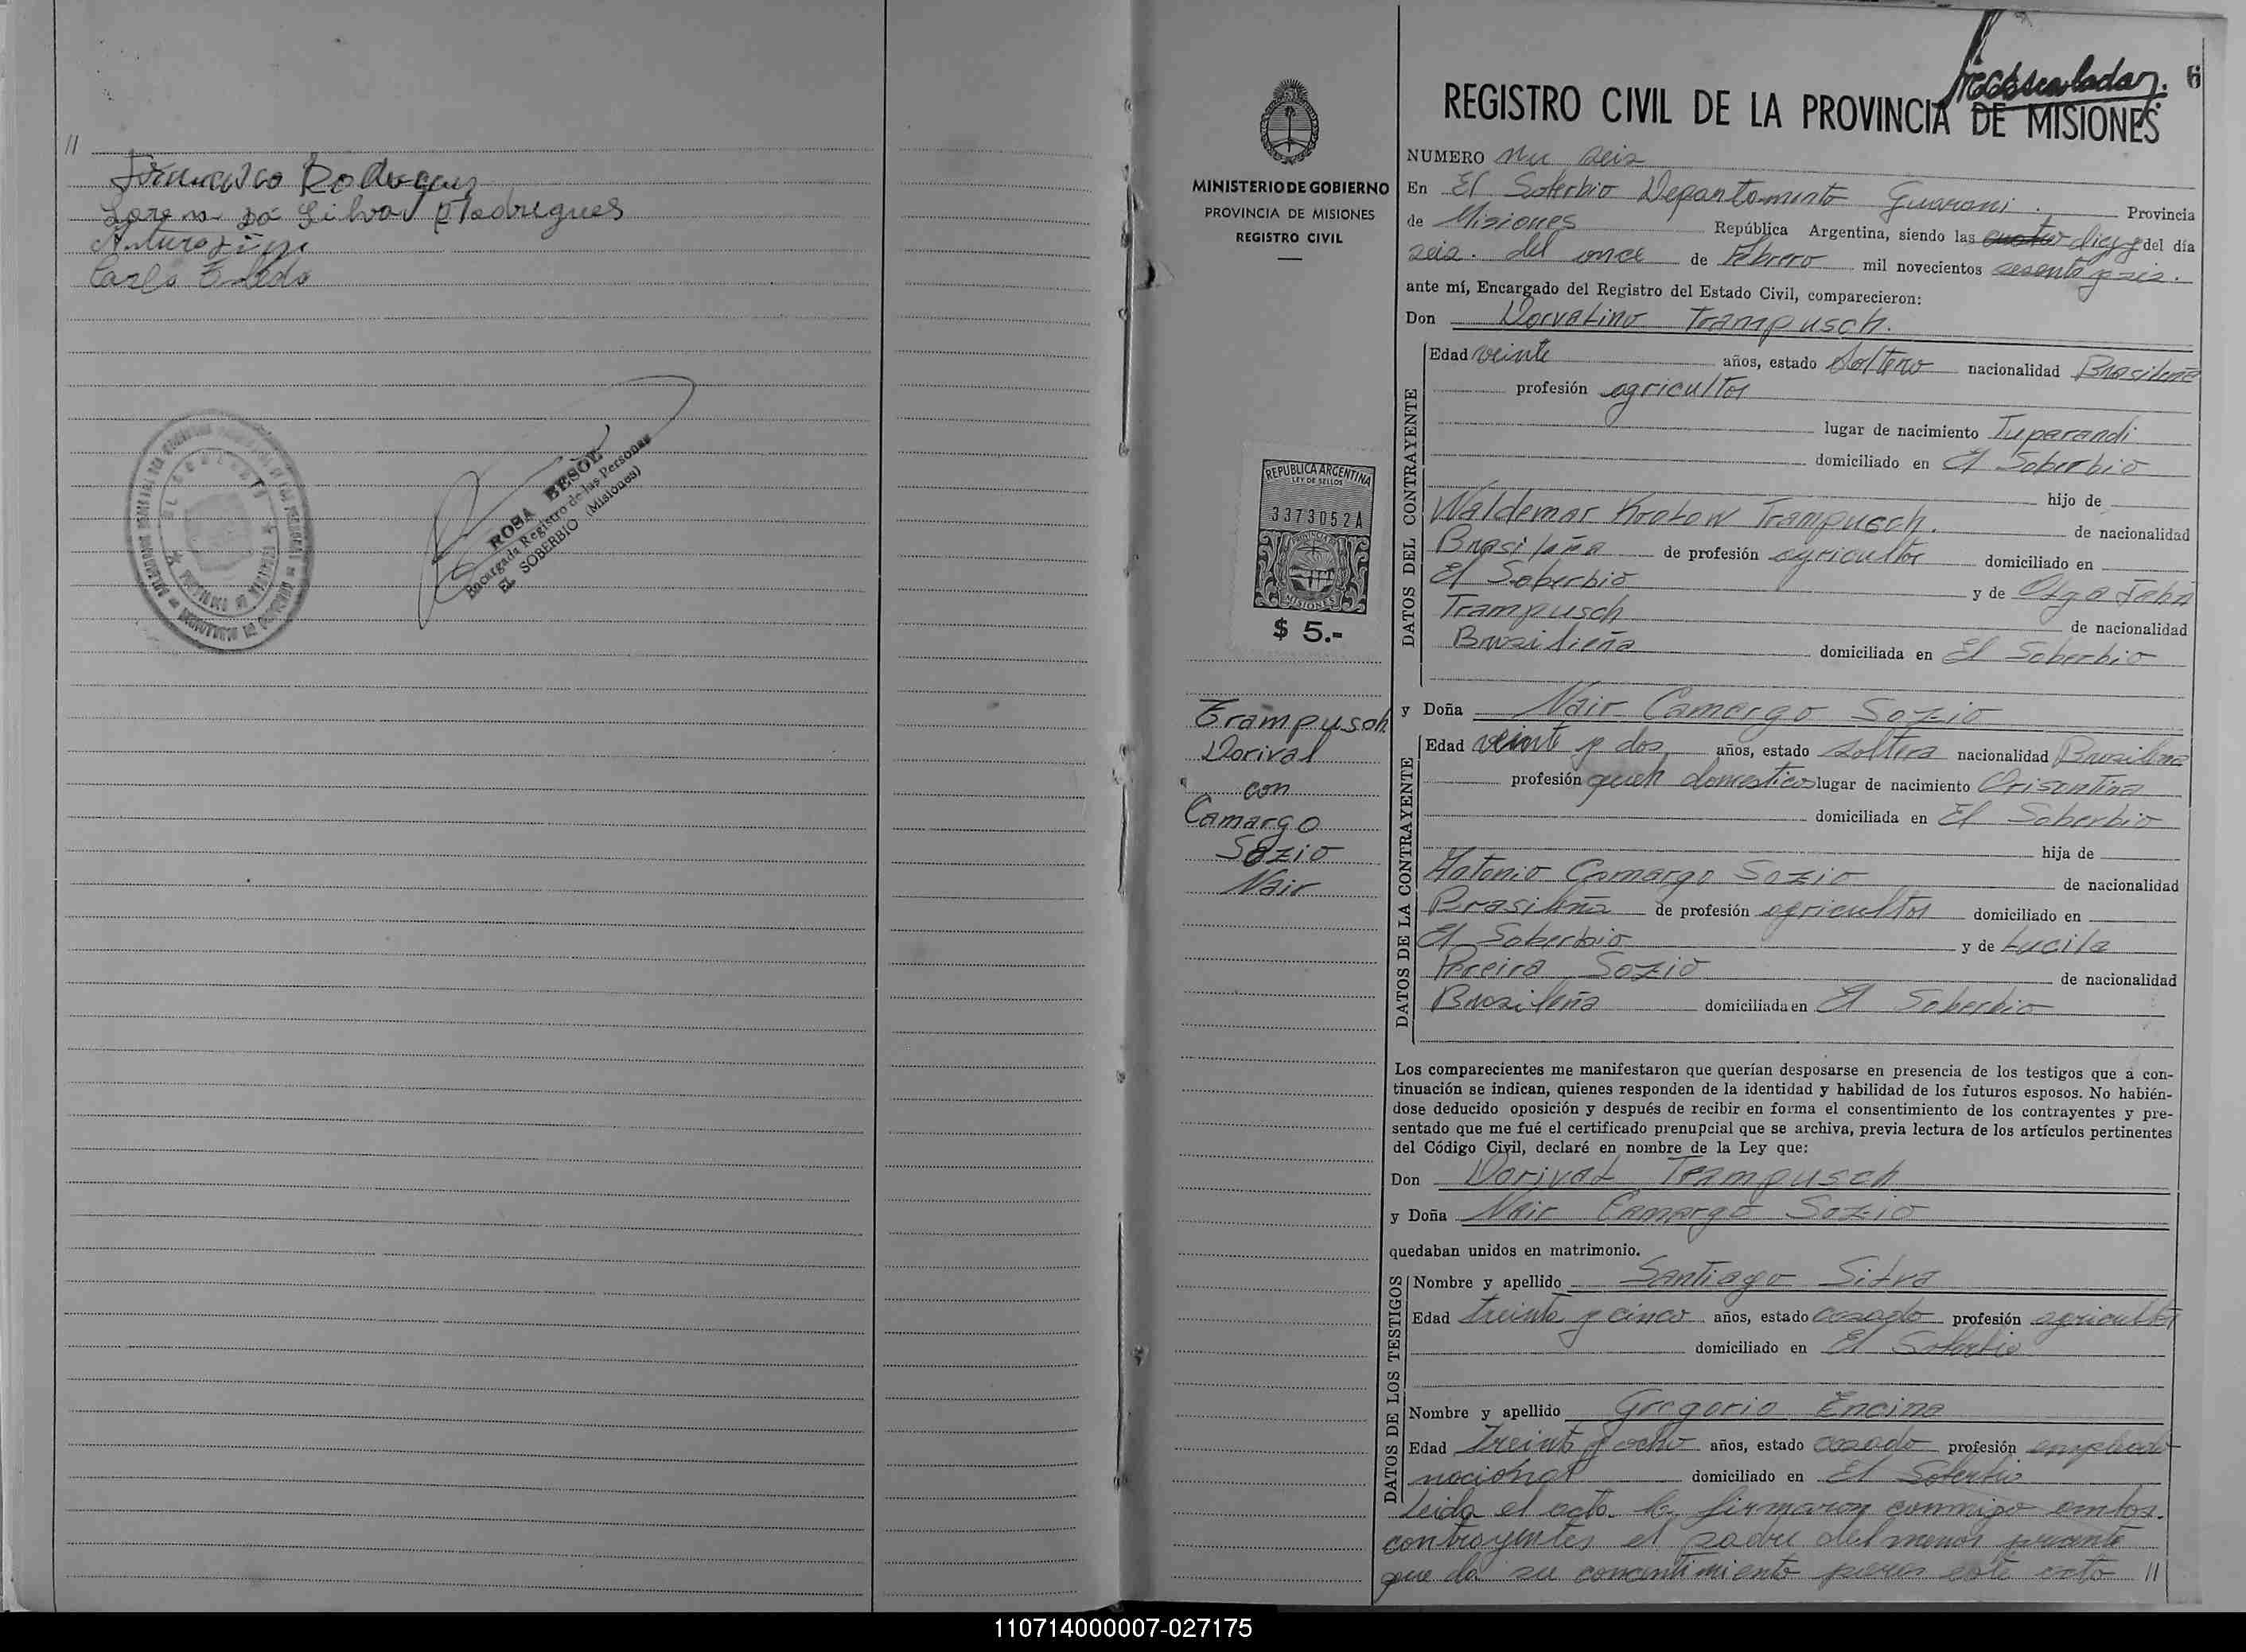 //
Francisco Rodrigues
Lorena da Silva Rodrigues
Arturo
Carlo Toledo
EL SOBERBIO
ROSA BESOL
Encargada Registro de las Personas
EL SOBERBIO (Misiones)
6
REGISTRO CIVIL DE LA PROVINCIA DE MISIONES
MINISTERIO DE GOBIERNO
PROVINCIA DE MISIONES
REGISTRO CIVIL
REPUBLICA ARGENTINA
LEY DE SELLOS
3373052A
MISIONES
$ 5.-
Trampusch
Dorival
con
Camargo
Sozio
Nair
NUMERO seis
En El Soberbio Departamento Guarani. Provincia
de Misiones República Argentina, siendo las cuatro diez y del día
seis. del once de Febrero mil novecientos sesenta y seis.
ante mí, Encargado del Registro del Estado Civil, comparecieron:
Don Dorvalino Trampusch.
DATOS DEL CONTRAYENTE
Edad veinte años, estado Soltero nacionalidad Brasileña
profesión agricultor
lugar de nacimiento Tuparandi
domiciliado en El Soberbio
hijo de
Waldemar Trampusch. de nacionalidad
Brasileña de profesión agricultor domiciliado en
El Soberbio y de Olga
Trampusch de nacionalidad
Brasileña domiciliada en El Soberbio
y Doña Nair Camargo Sozio
DATOS DE LA CONTRAYENTE
Edad veinte y dos años, estado soltera nacionalidad Brasileña
profesión queh domesticos lugar de nacimiento
domiciliada en El Soberbio
hija de
Antonio Camargo Sozio de nacionalidad
Brasileña de profesión agricultor domiciliado en
El Soberbio y de Lucila
Pereira Sozio de nacionalidad
Brasileña domiciliada en El Soberbio
Los comparecientes me manifestaron que querían desposarse en presencia de los testigos que a con-
tinuación se indican, quienes responden de la identidad y habilidad de los futuros esposos. No habién-
dose deducido oposición y después de recibir en forma el consentimiento de los contrayentes y pre-
sentado que me fué el certificado prenupcial que se archiva, previa lectura de los artículos pertinentes
del Código Civil, declaré en nombre de la Ley que:
Don Dorival Trampusch
y Doña Nair Camargo Sozio
quedaban unidos en matrimonio.
DATOS DE LOS TESTIGOS
Nombre y apellido Santiago Silva
Edad treinta y cinco años, estado casado profesión agricultor
domiciliado en El Soberbio
Nombre y apellido Gregorio Encina
Edad Treinta y ocho años, estado casado profesión empleado
nacional domiciliado en El Soberbio
Leida el acta la firmaron conmigo ambos.
contrayentes el padre del menor presente
que da su concentimiento para este acto //
110714000007-027175